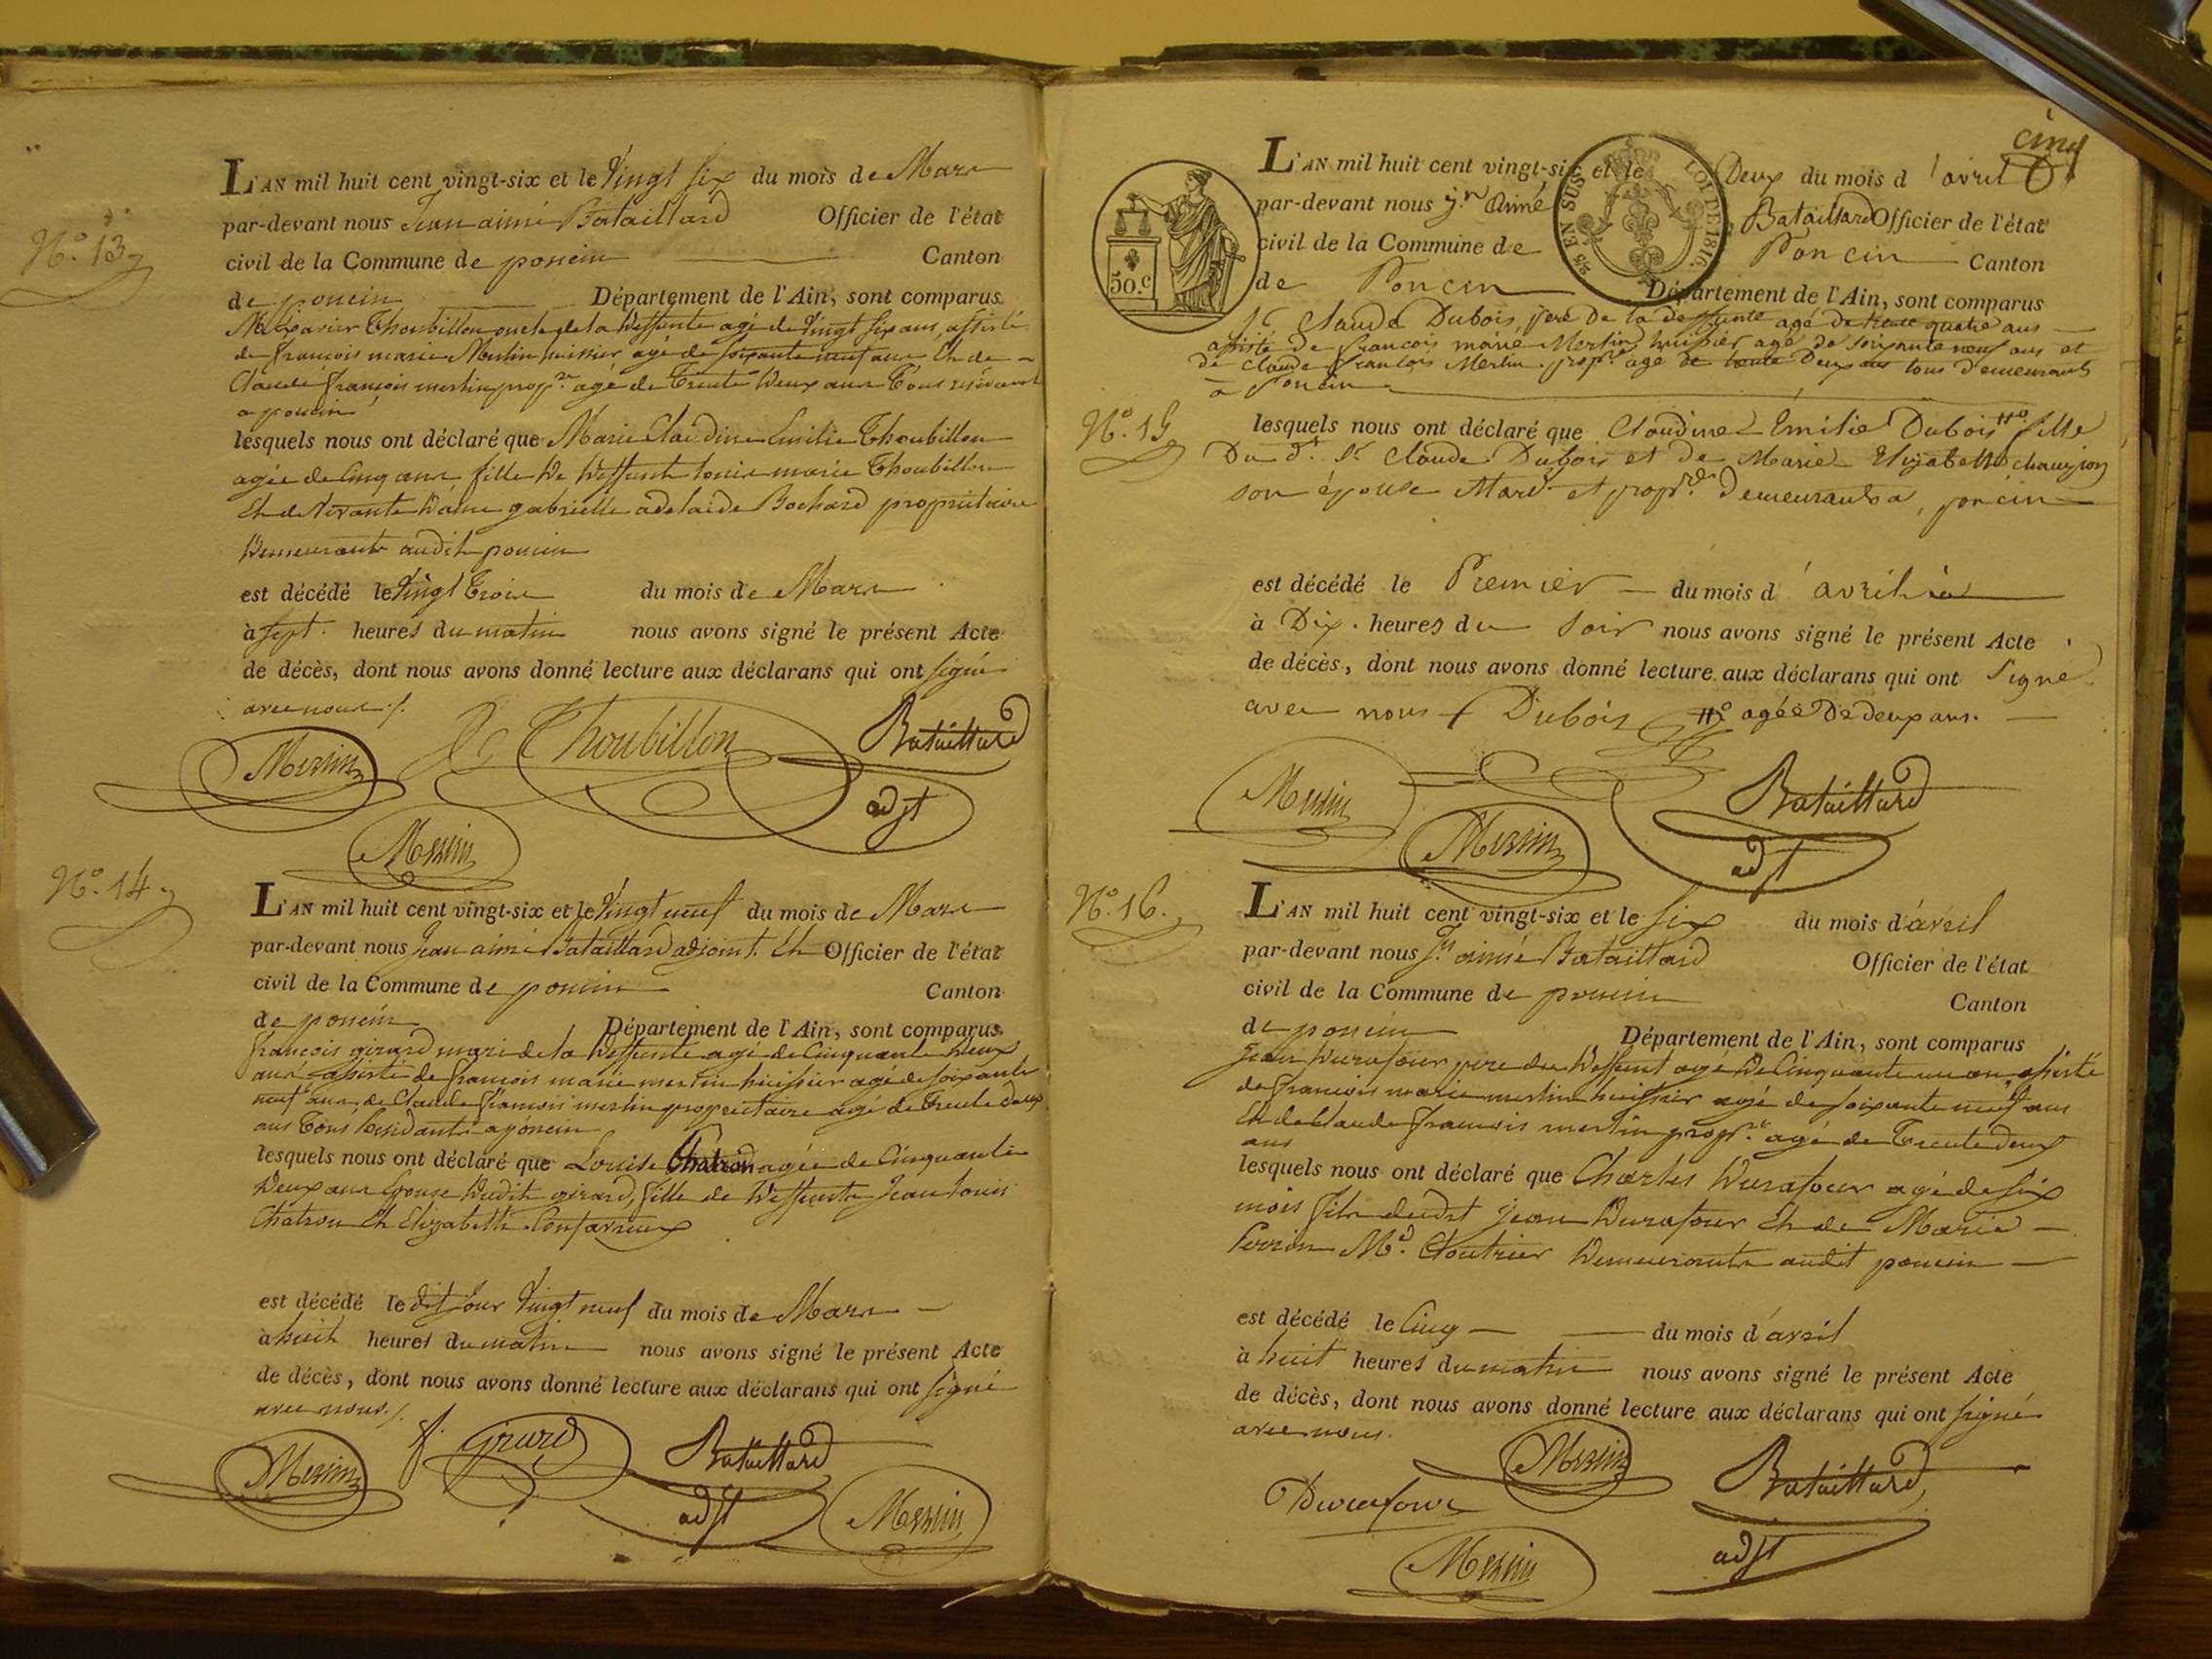 N.º 13
L'AN mil huit cent vingt-six et le Vingt six du mois de Mars
par-devant nous Jean aimé Bataillard Officier de l'état
civil de la Commune de poncin Canton
de poncin Département de l'Ain, sont comparus
Thoubillon oncle de la deffunte agé de Vingt six ans, assisté
de françois marie Merlin huissier agé de soixante neuf ans Et de
Claude françois merlin prop.re agé de Trente deux ans Tous résidant
a poncin
lesquels nous ont déclaré que Marie Claudine Emilie Thoubillon
agée de Cinq ans fille de deffunt louis marie Thoubillon
Et de Vivante dame gabrielle adelaide Bochard propriétaire
demeurante audit poncin
est décédé le Vingt trois du mois de Mars
à sept heures du matin nous avons signé le présent Acte
de décès, dont nous avons donné lecture aux déclarans qui ont signé
avec nous ./.
Merlin Thoubillon Bataillard
adjt
Merlin
N.º 14
L'AN mil huit cent vingt-six et le Vingt neuf du mois de Mars
par-devant nous Jean aimé Bataillard adjoint Et Officier de l'état
civil de la Commune de poncin Canton
de poncin Département de l'Ain, sont comparus
françois girard mari de la deffunte agé de Cinquante deux
ans assisté de françois marie merlin huissier agé de soixante
neuf ans, de Claude françois merlin propriétaire agé de Trente deux
ans Tous Residants a poncin
lesquels nous ont déclaré que Louise Chatron agée de Cinquante
deux ans Epouse dudit girard, fille de deffunts Jean louis
Chatron Et Elizabeth
est décédé le dit jour Vingt neuf du mois de Mars
à huit heures du matin nous avons signé le présent Acte
de décès, dont nous avons donné lecture aux déclarans qui ont signé
avec nous ./.
Merlin f. girard Bataillard
adjt Merlin
cinq
50.c
2/5 EN SUS LOI DE 1816.
L'AN mil huit cent vingt-six et le Deux du mois d'avril
par-devant nous j.n Aimé Bataillard Officier de l'état
civil de la Commune de Poncin Canton
de Poncin Département de l'Ain, sont comparus
Claude Dubois père de la deffunte agé de trente quatre ans
assisté de françois marie Merlin huissier agé de soixante neuf ans et
de Claude françois Merlin prop.re agé de trente Deux ans tous demeurants
à Poncin
N.º 15
lesquels nous ont déclaré que Claudine Emilie Dubois fille
Du d.t S.r Claude Dubois et de Marie Elizabeth
son épouse Mard et prop.re demeurants a poncin
est décédé le Premier du mois d'avril
à Dix heures du soir nous avons signé le présent Acte
de décès, dont nous avons donné lecture aux déclarans qui ont Signé
avec nous Dubois agée De deux ans.
Merlin Bataillard
Merlin adjt
N.º 16.
L'AN mil huit cent vingt-six et le six du mois d'avril
par-devant nous Jn aimé Bataillard Officier de l'état
civil de la Commune de poncin Canton
de poncin Département de l'Ain, sont comparus
Jean Durafour pere du deffunt agé de Cinquante un an, assisté
de françois marie merlin huissier agé de soixante neuf ans
Et de Claude françois merlin prop.re agé de Trente deux
ans
lesquels nous ont déclaré que Charles Durafour agé de six
mois fils dudit Jean Durafour Et de Marie
Perrin M.d Cloutrier demeurants audit poncin
est décédé le Cinq du mois d'avril
à huit heures du matin nous avons signé le présent Acte
de décès, dont nous avons donné lecture aux déclarans qui ont signé
avec nous.
Merlin Bataillard
Durafour
Merlin adjt